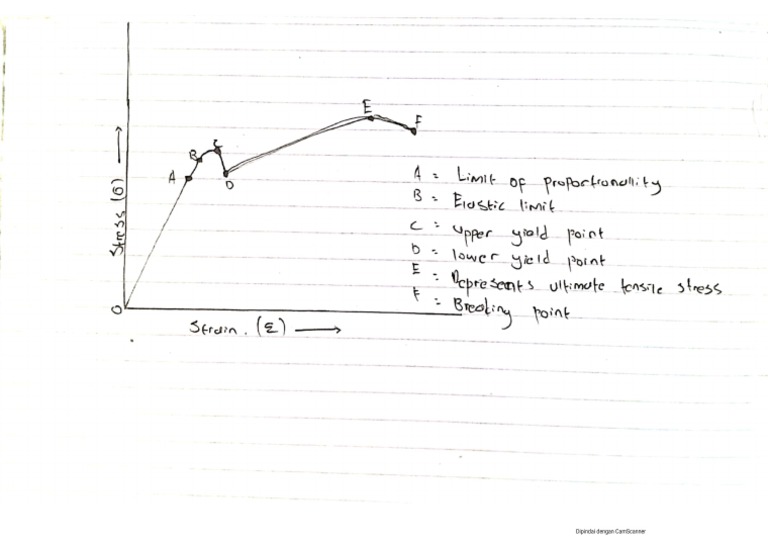 E
F
C
B
A
D
A = Limit of proportionallity
B = Elastic limit
C = upper yield point
D = lower yield point
E = Represents ultimate tensile stress
F = Breaking point
Stress (σ)
O
Strain. (Σ)
Dipindai dengan CamScanner